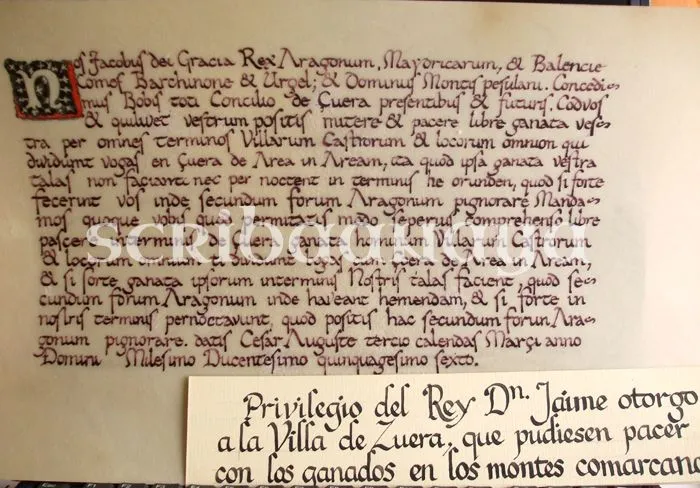 Nos Jacobus dei Gracia Rex Aragonum, Mayoricarum, & Balencie
Comes Barchinone & Urgel; & Dominus Montis pesulanu. Concedi-
mus Bobis toti Concilio de Çuera presentibus & futuris. Codvos
& quilivet vestrum positis mitere & pacere libre ganata ves-
tra per omnes terminos Villarum Castrorum & locorum omnion qui
dividunt vogas en Çuera de Area in Aream, ita quod ipsa ganata vestra
talas non faciant nec per noctent in terminis he orunden, quod si forte
fecerint vos inde secundum forum Aragonum pignorare Manda-
mos quoque vobis quod permitatis modo seperius comprehenso libre
pascere interminis de Çuera ganata hominum Villarum Castrorum
& locorum omnium dividunt vogas cum Çuera de Area in Aream,
& si forte ganata ipsorum interminis Nostris talas facient, quod se-
cundum forum Aragonum inde haveant hemendam, & si forte in
nostris terminis pernoctavunt, quod positis hac secundum forun Ara-
gonum pignorare. datis Cesar Auguste tercio calendas Marçi anno
Domini Milesimo Ducentesimo quinquagesimo sexto.
Privilegio del Rey Dn. Jaime otorgo
a la Villa de Zuera, que pudiesen pacer
con los ganados en los montes comarcano